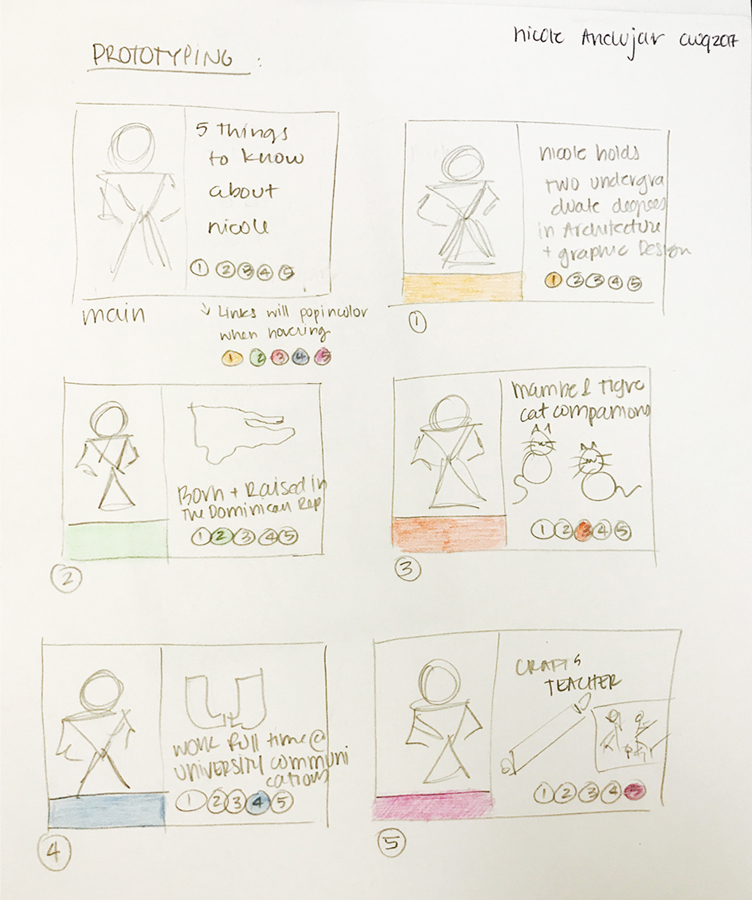 PROTOTYPING :
Nicole Andujar
5 Things
to know
about
nicole
1 2 3 4 5
main
↘ Links will pop in color
when hovering
1 2 3 4 5
nicole holds
two undergra
duate degrees
in Architecture
+ graphic Design
1 2 3 4 5
1
Born + Raised in
The Dominican Rep
1 2 3 4 5
2
Tigre
cat companions
1 2 3 4 5
3
U
work full time @
UNIVERSITY communi
cations
1 2 3 4 5
4
CRAFTS
TEACHER
1 2 3 4 5
5